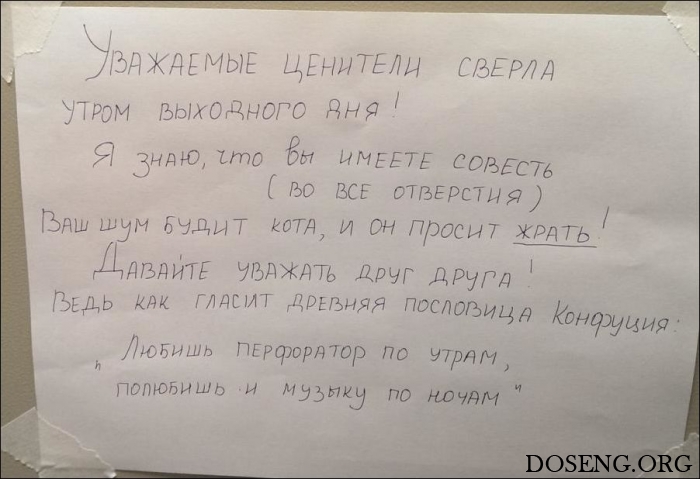 Уважаемые ценители сверла
утром выходного дня!
Я знаю, что вы имеете совесть
(во все отверстия)
Ваш шум будит кота, и он просит жрать!
Давайте уважать друг друга!
Ведь как гласит древняя пословица Конфуция:
„Любишь перфоратор по утрам,
полюбишь и музыку по ночам"
DOSENG.ORG